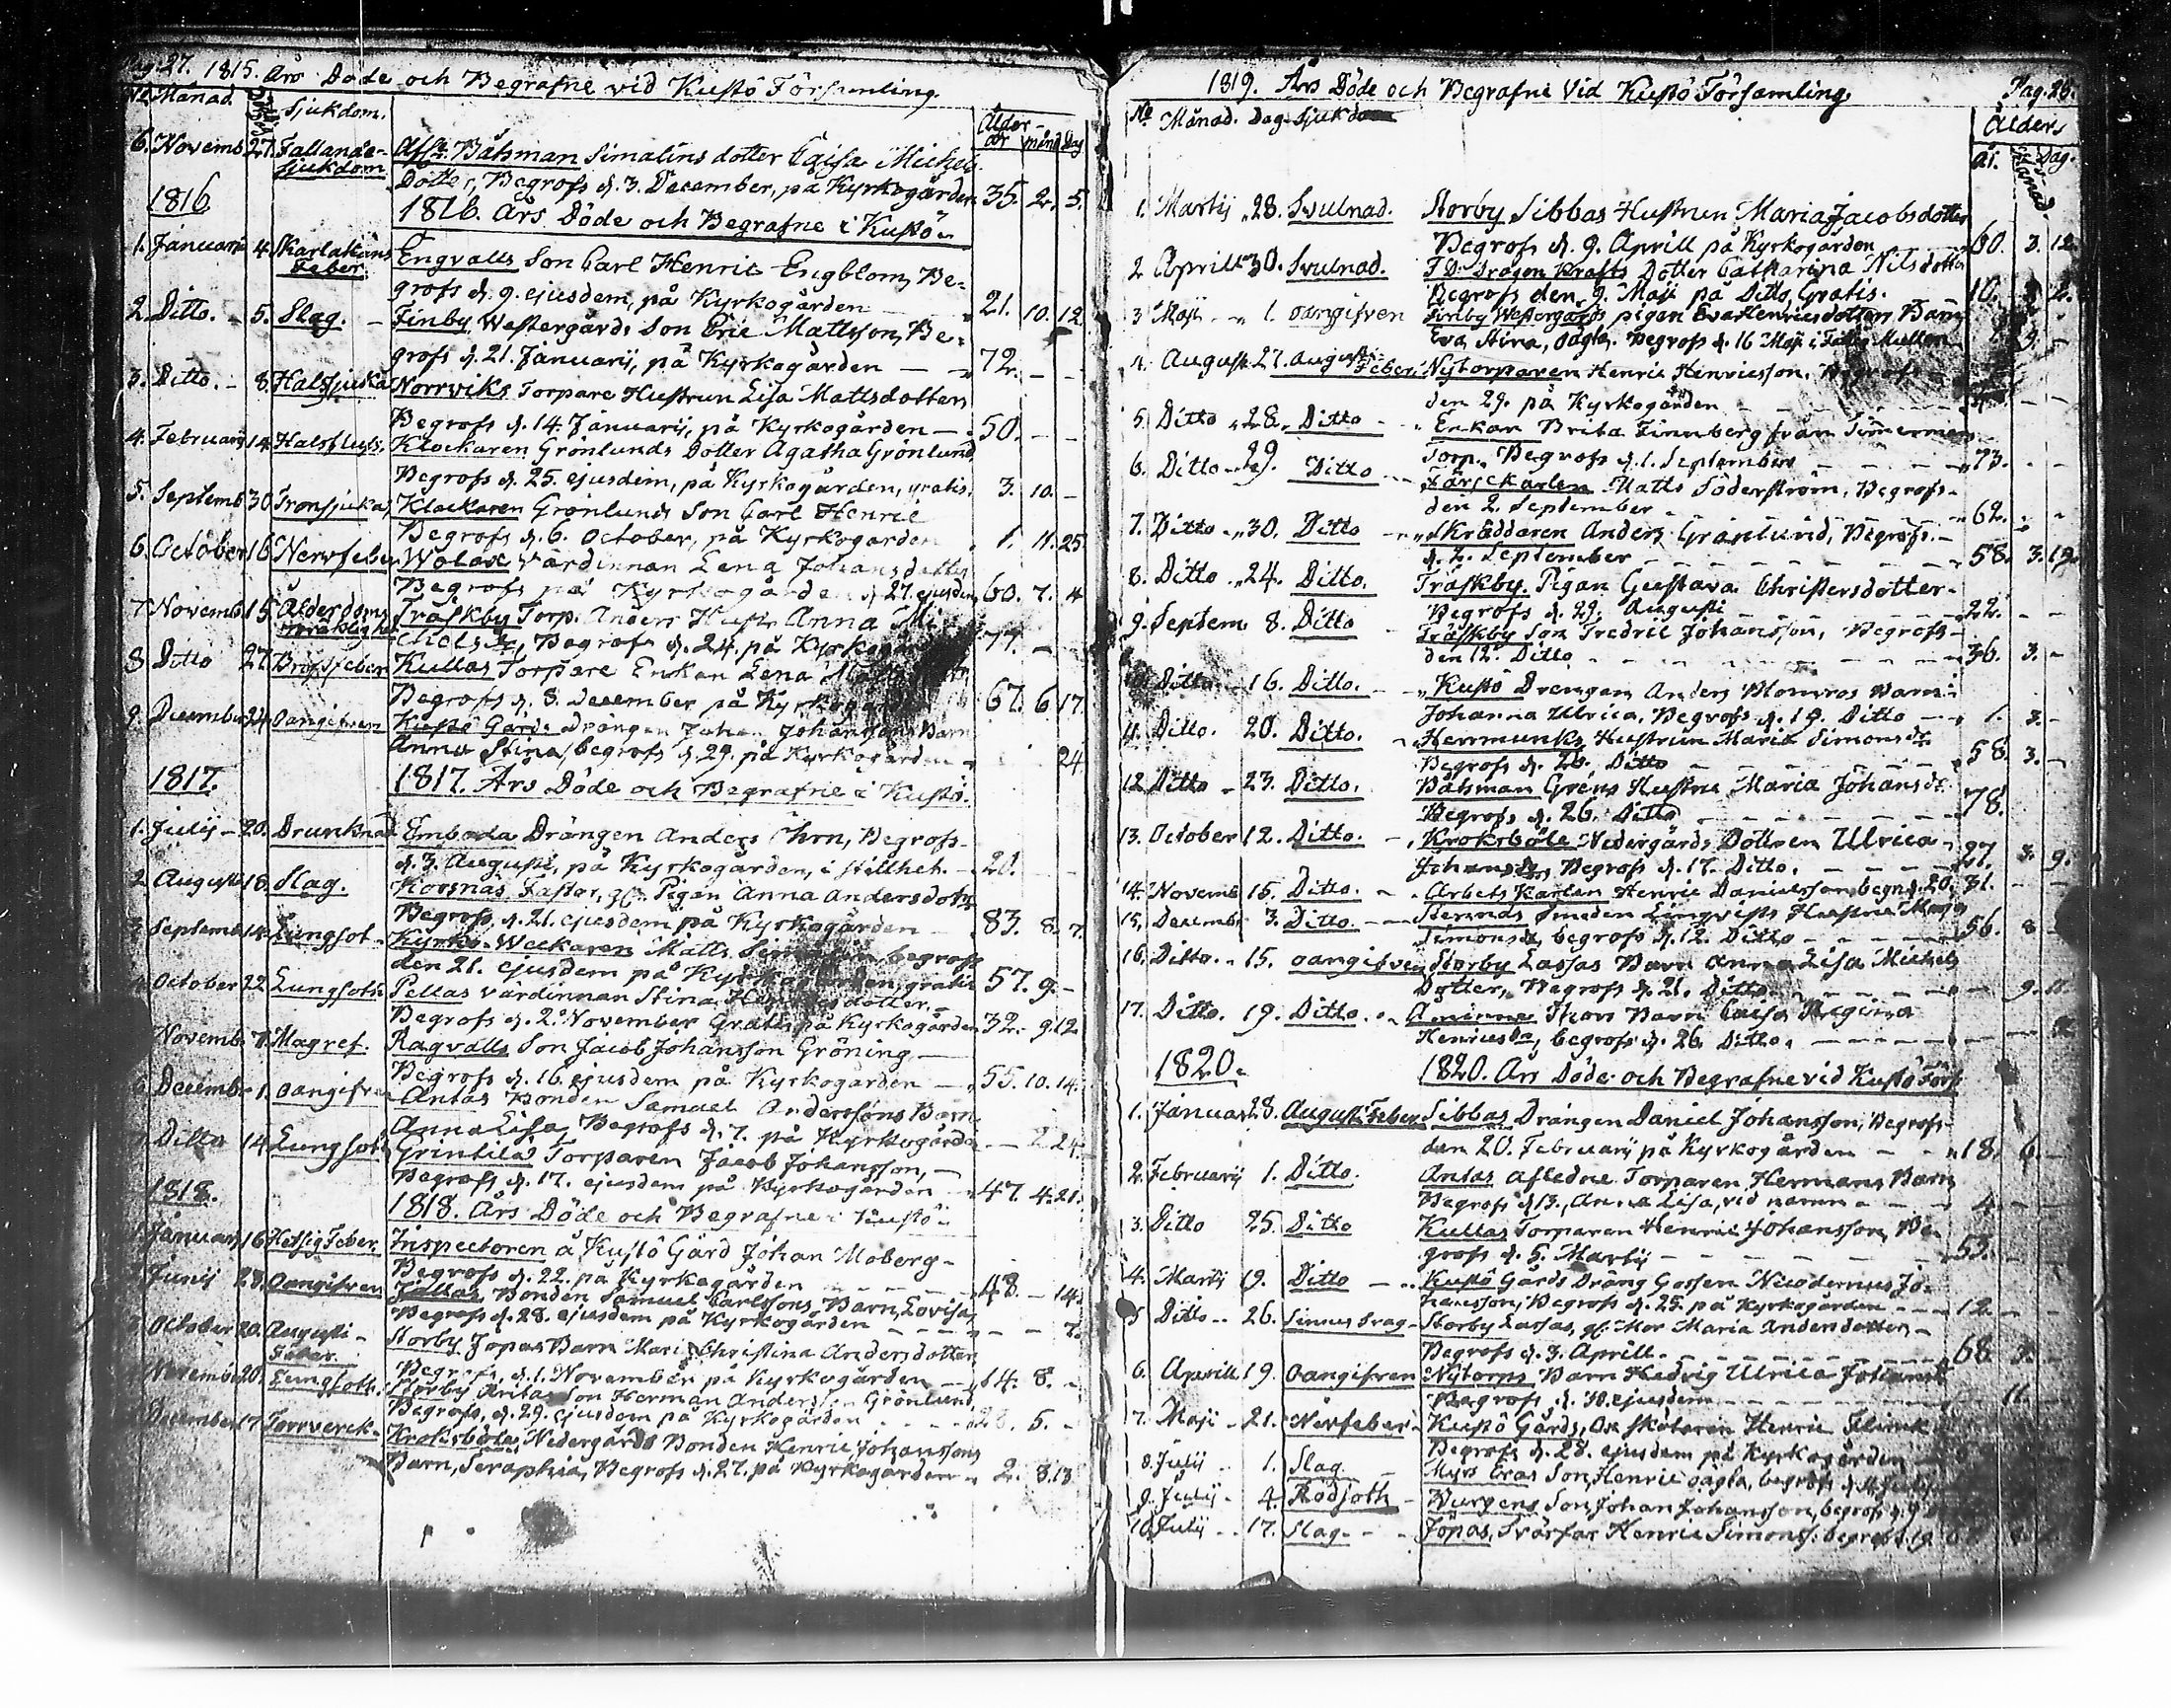 Pag. 27. 1815. Års Döde och Begrafne vid Kustö Församling.
No Månad. Sjukdom. Ålder
år månd Dag
6. Novemb. 27. Fallande- Båtsman Simalins dotter Michels
sjukdom Dotter, Begrofs d. 3. December, på Kyrkogården 35. 2. 5.
1816. 1816. Års Döde och Begrafne i Kustö.
1. Januarii 4. Skarlakans Engvalls Son Carl Henric Engblom, Be-
Feber. grofs d. 9. ejusdem, på Kyrkogården 21. 10. 12.
2. Ditto. 5. Slag. Finby Westergårds Son Eric Mattsson, Be-
grofs d. 21. Januarij, på Kyrkogården 72. - -
3. Ditto. 8. Halssjuka Norrviks Torpare Hustrun Lisa Mattsdotter
Begrofs d. 14. Januarij, på Kyrkogården 50. - -
4. Februarij 14. Halsfluss. Klockaren Grönlunds Dotter Agatha Grönlund
Begrofs d. 25. ejusdem, på Kyrkogården, gratis. 3. 10. -
5. Septemb. 30. Klockaren Grönlunds Son Carl Henric
Begrofs d. 6. October, på Kyrkogården 1. 11. 25.
6. October 16. Nervfeber Wolax Värdinnan Lena Johansdotter
Begrofs på Kyrkogården d. 27. ejusdem 60. 7. 4
7. Novemb. 15. Ålderdoms Träskby Torp. Anders Hustr. Anna Mi-
chelsdr, Begrofs d. 24. på Kyrkogården 77. -
8. Ditto 27. Bröstfeber Kullas Torpare Enkan Lena
Begrofs d. 8. December på Kyrkogården 67. 6. 17.
9. December 24. Oangifven Kustö Gårds Drängen Johan Johanssons Barn
Anna Stina, begrofs d. 29. på Kyrkogården 24.
1817. 1817. Års Döde och Begrafne i Kustö.
1. Julij 20. Drunknad Empoda Drängen Anders Begrofs
d. 3. Augusti, på Kyrkogården, i stillhet. 20.
2. Augusti 18. Slag. Korsnäs Fastor, Pigan Anna Andersdotter
Begrofs, d. 21. ejusdem på Kyrkogården 83. 8. 7.
3. Septemb. 14. Lungsot. Kyrko-Weckaren Matts begrofs
den 21. ejusdem på Kyrkogården, gratis 57. 9. -
October 22. Lungsoth Pellas värdinnan Stina
Begrofs d. 2. November Gratis på Kyrkogården 32. 9. 12.
Novemb. 7. Mag ref. Ragvalls Son Jacob Johansson Gröning
Begrofs d. 16. ejusdem på Kyrkogården 55. 10. 14.
6. Decemb. 1. oangifven Antas Bonden Samuel Anderssons Barn
Anna Lisa, Begrofs d. 7. på Kyrkogården - 2. 24.
Ditto 14. Lungsot Torparen Jacob Johansson,
Begrofs d. 17. ejusdem på Kyrkogården 47. 4. 21.
1818. 1818. Års Döde och Begrafne i Kustö.
1. Januarij 16. Hetsig Feber. Inspectoren å Kustö Gård Johan Moberg
Begrofs d. 22. på Kyrkogården 48. - 14.
Junij 23. Oangifven Bonden Samuel Carlssons Barn, Lovisa,
Begrofs d. 28. ejusdem på Kyrkogården
October 20. Augusti- Storby Jopas Barn Maria Christina Andersdotter
Feber. Begrofs, d. 1. November på Kyrkogården 14. 8. -
November 20. Lungsoth. Storby Antas Son Herman Andersson Grönlund,
Begrofs, d. 29. ejusdem på Kyrkogården 5. -
December 17. Torrverck. Kroksböle Nedergårds Bonden Henric Johanssons
Barn, Seraphia, Begrofs d. 27. på Kyrkogården 2. 8. 13
1819. Års Döde och Begrafne vid Kustö Församling. Pag. 28.
No Månad. Dag. Sjukdom Ålders
år. Månad. Dag.
1. Martij 28. Svulnad. Storby Sibbas Hustrun Maria Jacobsdotter
Begrofs d. 9. Aprill på Kyrkogården 60. 3. 12.
2. Aprill 30. Svulnad. Krafts Dotter Catharina Nilsdotter
Begrofs den 9. Maji på Ditto, Gratis. 10.
3. Maji 1. oangifven Finby Westergårds pigan Eva Henricsdotters Barn
Eva Stina, oägta. Begrofs d. 16 Maji i
4. August. 27. Augusti-Feber. Nytorparen Henric Henricsson, Begrofs
den 29. på Kyrkogården
5. Ditto 28. Ditto Enkan Brita Finnberg från
Torp. Begrofs d. 1. September 73. - -
6. Ditto 29. Ditto Färjekarlen Matts Söderström, Begrofs
den 2. September 62. - -
7. Ditto 30. Ditto Skräddaren Anders Grönlund, Begrofs
d. 2. September 58. 3. 19.
8. Ditto 24. Ditto. Träskby Pigan Gustava Christersdotter
Begrofs d. 29. Augusti 22. - -
9. Septem 8. Ditto Träskby Son Fredric Johansson, Begrofs
den 12. Ditto 36. 3. -
Ditto 16. Ditto. Kustö Drengen Anders Blomros Barn
Johanna Ulrica, Begrofs d. 19. Ditto 1. 3. -
11. Ditto. 20. Ditto. Herrmunks Hustrun Maria Simonsdr
Begrofs d. 26. Ditto 58. 3. -
12. Ditto 23. Ditto. Båtsman Gröns Hustru Maria Johansdr.
Begrofs d. 26. Ditto 78.
13. October 12. Ditto. Kroksböle Nedergårds Dottren Ulrica
Johansdr, Begrofs d. 17. Ditto. 3. 9.
14. Novemb. 15. Ditto. Arbets Karlen Henric Danielsson begr. d. 20. 31. - -
15. Decemb. 3. Ditto. Smeden Lingvists Hustru Maja
Simonsdr, begrofs d. 12. Ditto 56. 8
16. Ditto. 15. oangifven Storby Lassas Barn Anna Lisa Michels
Dotter, Begrofs d. 21. Ditto 9. 11.
17. Ditto. 19. Ditto. Thors Barn Caisa Regina
Henricsdr, begrofs d. 26. Ditto.
1820. 1820. Års Döde och Begrafne vid Kustö Förs
1. Januar. 28. Augusti Feber Sibbas Drängen Daniel Johansson, Begrofs
den 20. Februarij på Kyrkogården 18. 6. -
2. Februarij 1. Ditto. Antas Afledne Torparen Hermans Barn
Begrofs d. 13. Anna Lisa, vid namn 4
3. Ditto 25. Ditto Kullas Torparen Henric Johansson, Be-
grofs d. 5. Martij 53.
4. Martij 19. Ditto Kustö Gårds Dräng Gossen Nicodemus Jo-
hansson, Begrofs d. 25. på Kyrkogården 12. - -
5 Ditto 26. Storby Lassas, gl. Mor Maria Andersdotter
Begrofs d. 3. Aprill. 68.
6. Aprill 19. Oangifven Nytorps Barn Hedvig Ulrica
Begrofs d. ejusdem 11.
7. Maji 21. Nervfeber Kustö Gårds, Henric Flinck
Begrofs d. 28. ejusdem på Kyrkogården
8. Julij 1. Slag Myrs Son, Henric oägta, begrofs d.
9. Julij 4. Rödsoth Burgens Son Johan Johansson, begrofs d. 9
10. Julij 17. Slag Jopas, Svärfar Henric Simonss. begrofs d. 19